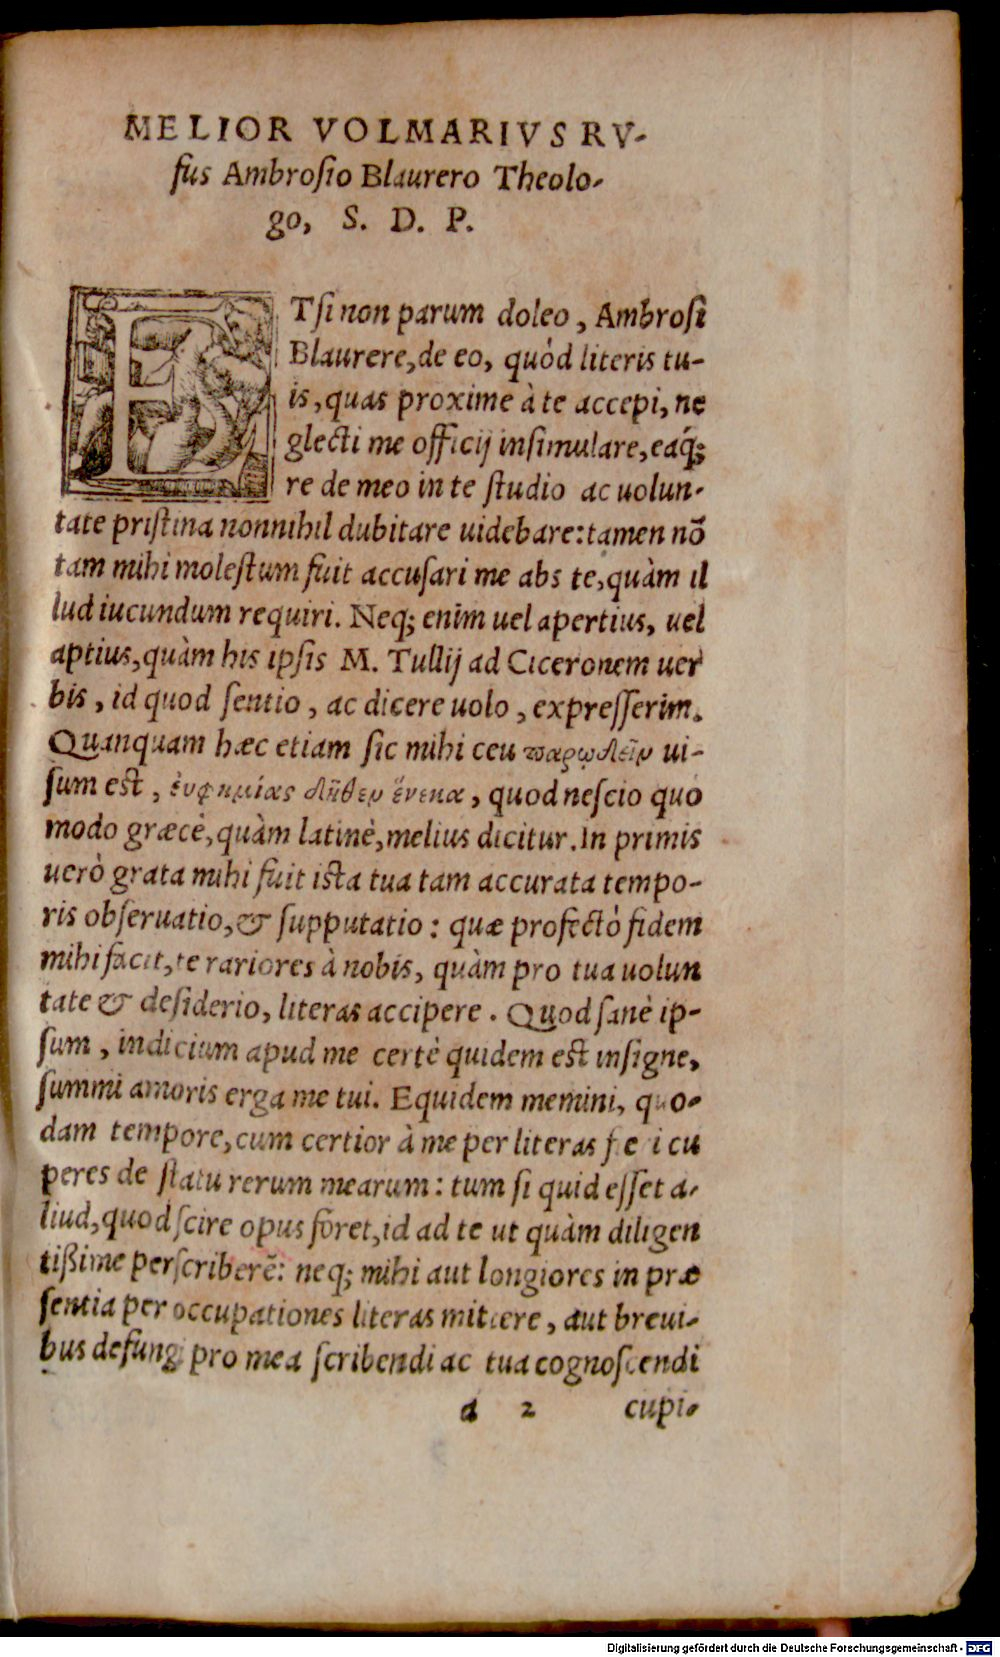 MELIOR VOLMARIVS RV-
fus Ambroſio Blaurero Theolo-
go, S. D. P.
ETſi non parum doleo, Ambroſi
Blaurere, de eo, quòd literis tu-
is, quas proxime à te accepi, ne
glecti me officij inſimulare, eaq́;
re de meo in te ſtudio ac uolun-
tate priſtina nonnihil dubitare uidebare: tamen nō
tam mihi moleſtum fuit accuſari me abs te, quàm il
lud iucundum requiri. Neq; enim uel apertius, uel
aptius, quàm his ipſis M. Tullij ad Ciceronem uer
bis, id quod ſentio, ac dicere uolo, expreſſerim.
Quanquam hæc etiam ſic mihi ceu παρῳδεῖν ui-
ſum est, ἐυφημίας δῆθεν ἕνεκα, quod neſcio quo
modo græcè, quàm latinè, melius dicitur. In primis
uerò grata mihi fuit iſta tua tam accurata tempo-
ris obſeruatio, & ſupputatio: quæ profectò fidem
mihi facit, te rariores à nobis, quàm pro tua uolun
tate & deſiderio, literas accipere. Quod ſanè ip-
ſum, indicium apud me certè quidem est inſigne,
ſummi amoris erga me tui. Equidem memini, quo-
dam tempore, cum certior à me per literas fieri cu
peres de ſtatu rerum mearum: tum ſi quid eſſet a-
liud, quod ſcire opus foret, id ad te ut quàm diligen
tißime perſcriberē: neq; mihi aut longiores in præ
ſentia per occupationes literas mittere, aut breui-
bus defungi pro mea ſcribendi ac tua cognoſcendi
a 2 cupi-
Digitalisierung gefördert durch die Deutsche Forschungsgemeinschaft - DFG